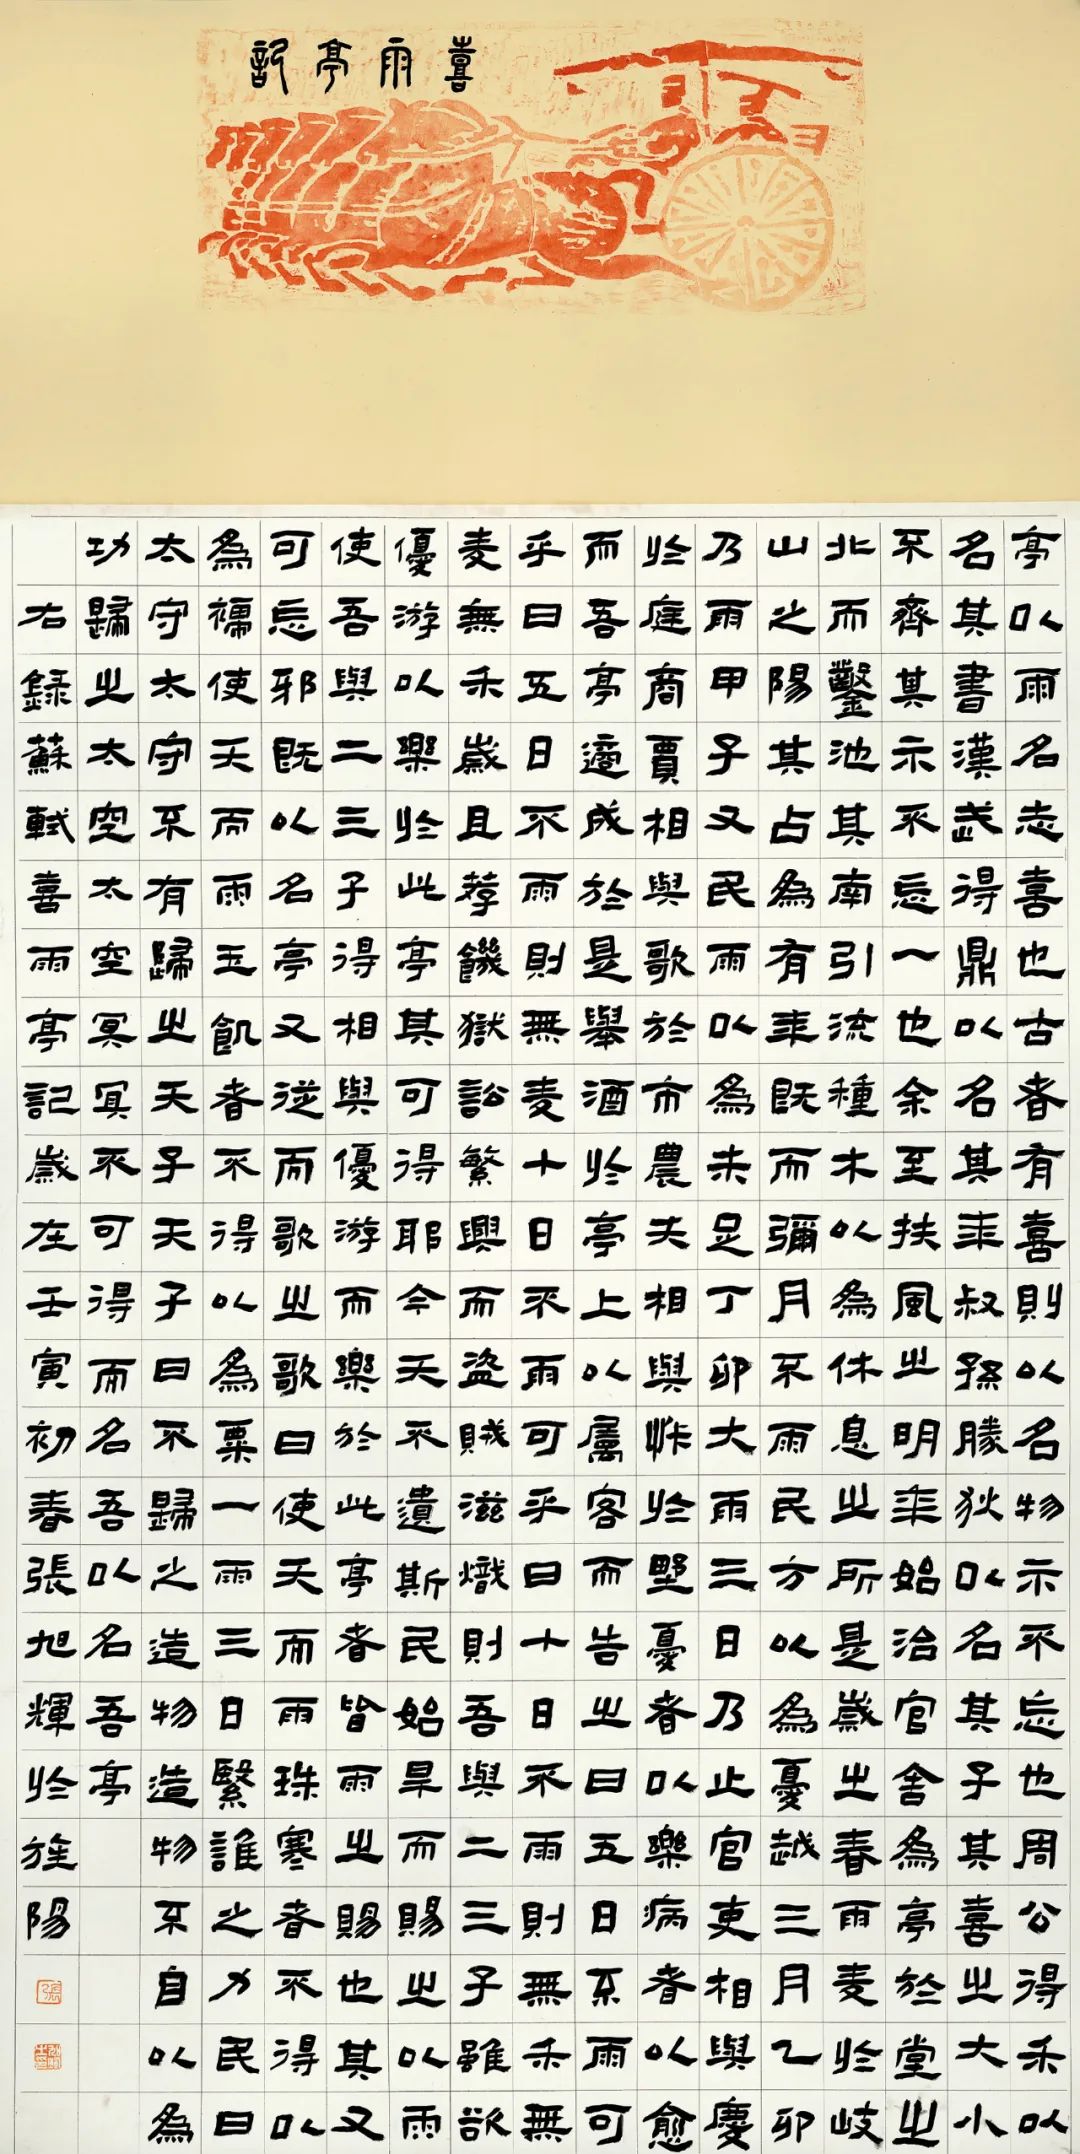 喜雨亭記
亭以雨名志喜也古者有喜則以名物示不忘也周公得禾以
名其書漢武得鼎以名其年叔孫勝狄以名其子其喜之大小
不齊其示不忘一也余至扶風之明年始治官舍為亭於堂之
北而鑿池其南引流種木以為休息之所是歲之春雨麥於岐
山之陽其占為有年既而彌月不雨民方以為憂越三月乙卯
乃雨甲子又民雨以為未足丁卯大雨三日乃止官吏相與慶
於庭商賈相與歌於市農夫相與忭於野憂者以樂病者以愈
而吾亭適成於是舉酒於亭上以屬客而告之曰五日不雨可
乎曰五日不雨則無麥十日不雨可乎曰十日不雨則無禾無
麥無禾歲且荐饑獄訟繁興而盜賊滋熾則吾與二三子雖欲
優游以樂於此亭其可得耶今天不遺斯民始旱而賜之以雨
使吾與二三子得相與優游而樂於此亭者皆雨之賜也其又
可忘邪既以名亭又從而歌之歌曰使天而雨珠寒者不得以
為襦使天而雨玉飢者不得以為粟一雨三日繄誰之力民曰
太守太守不有歸之天子天子曰不歸之造物造物不自以為
功歸之太空太空冥冥不可得而名吾以名吾亭
右錄蘇軾喜雨亭記歲在壬寅初春張旭輝於旌陽